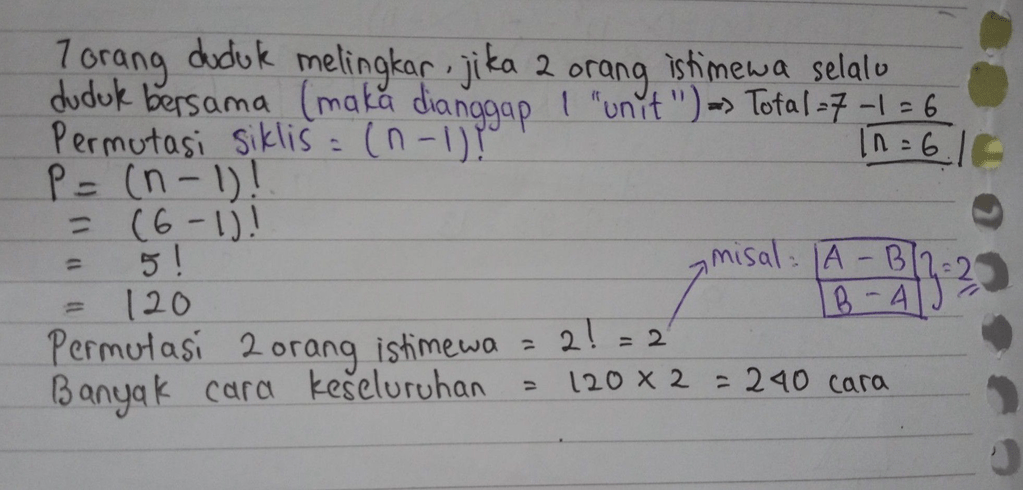 7 orang duduk melingkar, jika 2 orang istimewa selalu
duduk bersama (maka dianggap 1 "unit") => Total = 7 - 1 = 6
Permutasi siklis = (n - 1)!
n = 6
P = (n - 1)!
= (6 - 1)!
= 5!
misal: A - B } = 2
B - A
= 120
Permutasi 2 orang istimewa = 2! = 2
Banyak cara keseluruhan = 120 x 2 = 240 cara